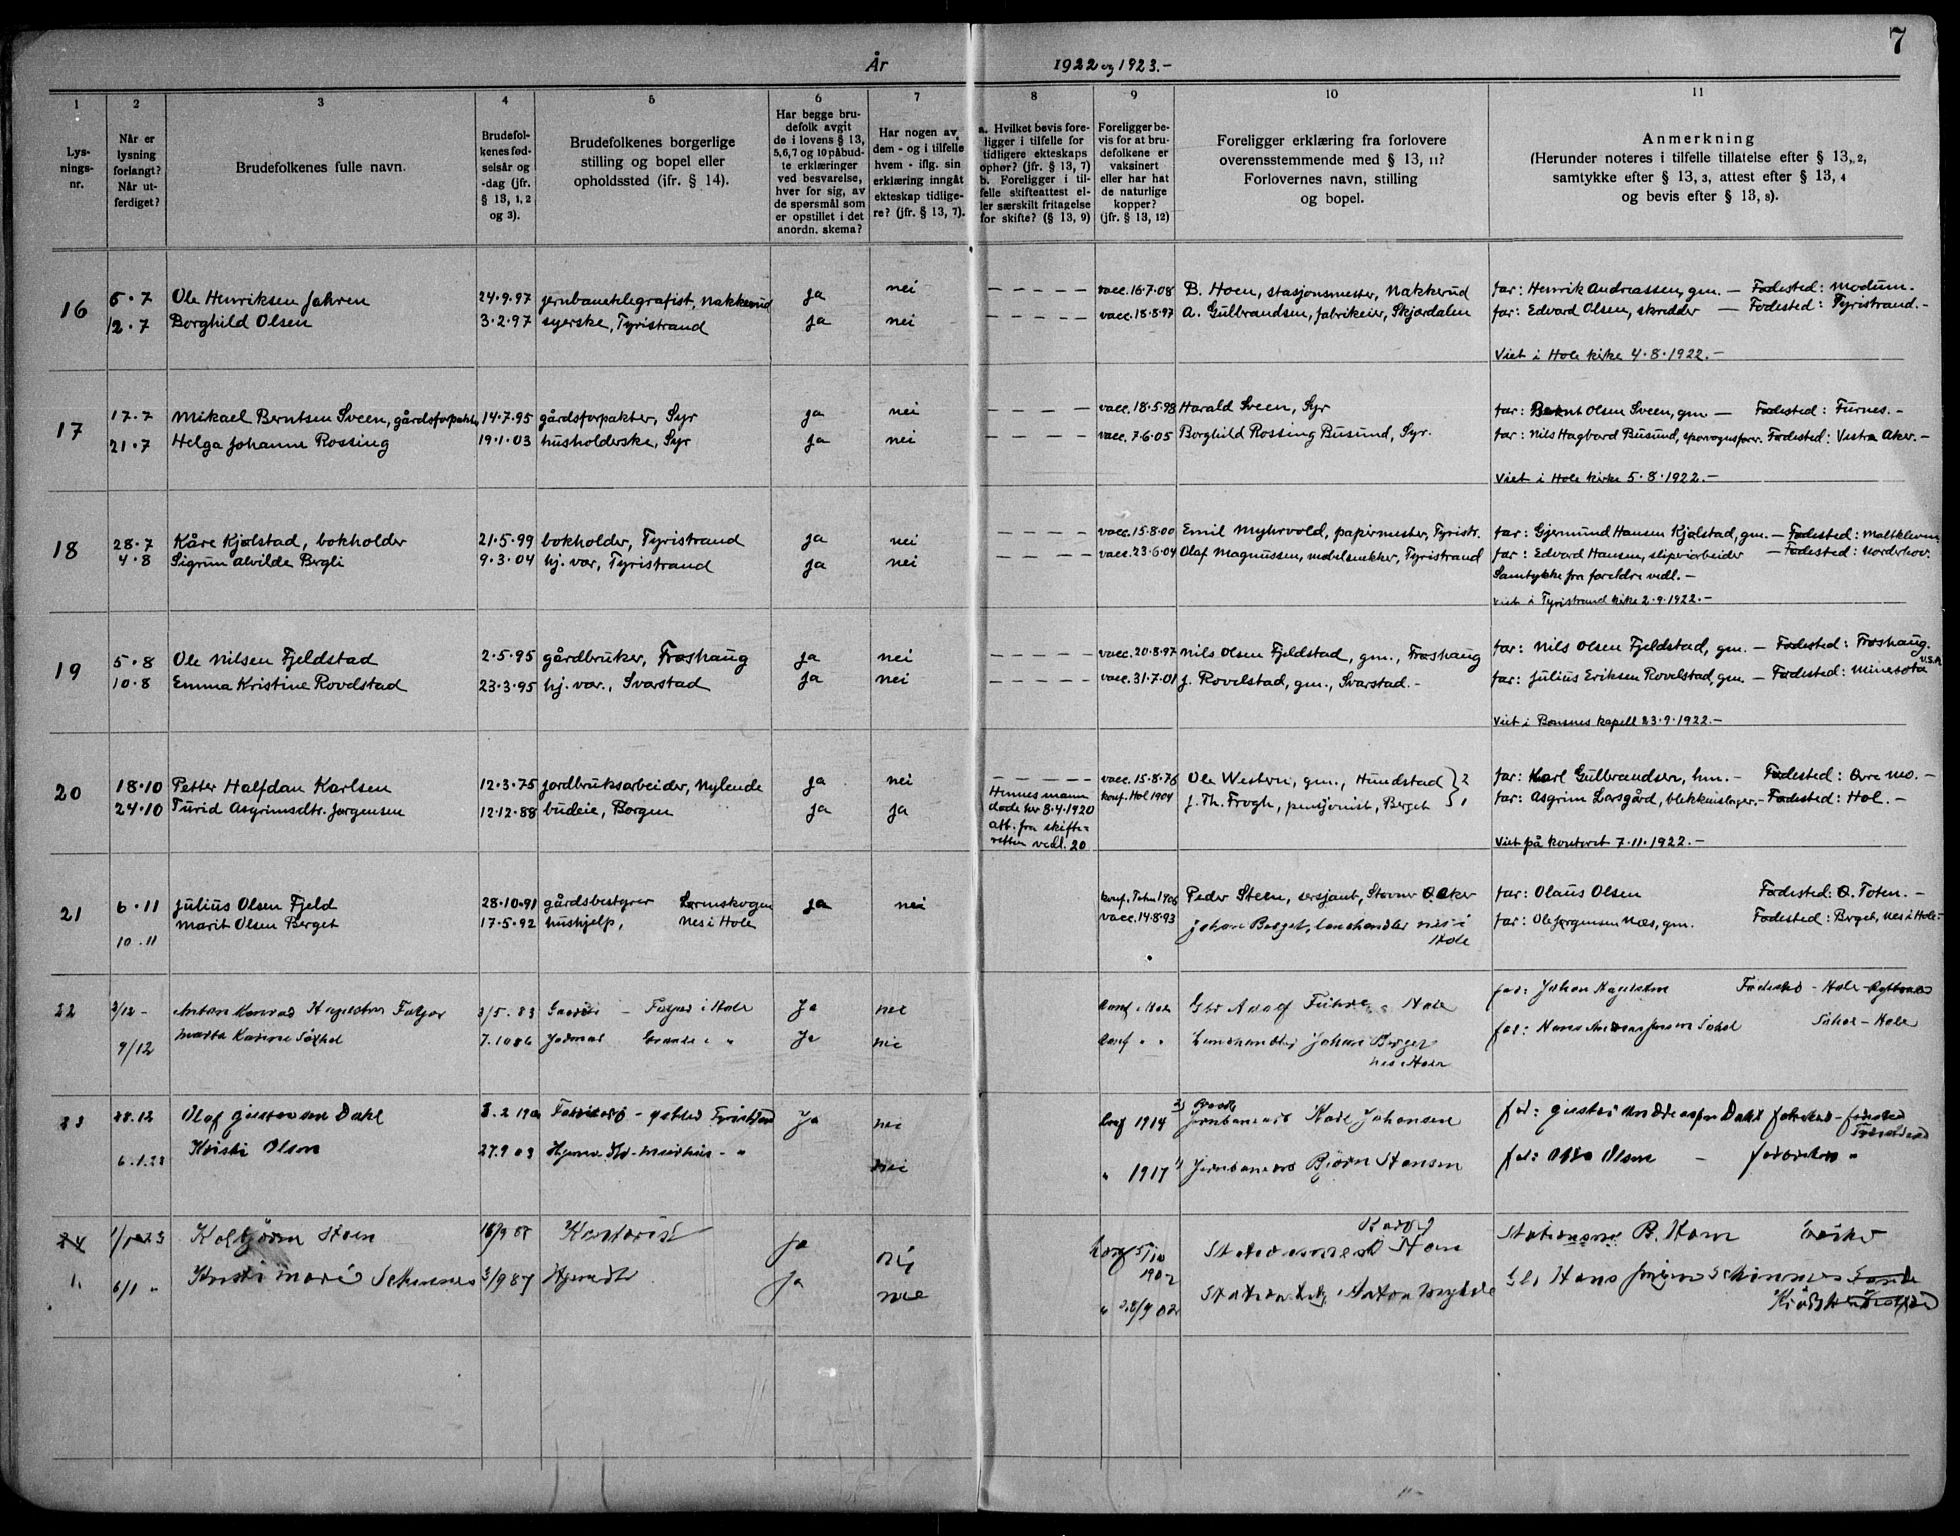 7
År 1922 og 1923.-
1 2 3 4 5 6 7 8 9 10 11
Lys-
nings-
nr.
Når er
lysning
forlangt?
Når ut-
ferdiget?
Brudefolkenes fulle navn.
Brudefol-
kenes fød-
selsår og
-dag (jfr.
§ 13, 1, 2
og 3).
Brudefolkenes borgerlige
stilling og bopel eller
opholdssted (ifr. § 14).
Har begge bru-
defolk avgit
de i lovens § 13,
5,6,7 og 10 påbud-
te erklæringer
ved besvarelse,
hver for sig, av
de spørsmål som
er opstillet i det
anordn. skema?
Har nogen av
dem - og i tilfelle
hvem - iflg. sin
erklæring inngåt
ekteskap tidlige-
re? (jfr. § 13, 7).
a. Hvilket bevis fore-
ligger i tilfelle for
tidligere ekteskaps
ophør? (jfr. § 13, 7)
b. Foreligger i til-
felle skifteattest el-
ler særskilt fritagelse
for skifte? (§ 13, 9)
Foreligger be-
vis for at bru-
defolkene er
vaksinert
eller har hat
de naturlige
kopper?
(jfr. § 13, 12)
Foreligger erklæring fra forlovere
overensstemmende med § 13, 11?
Forlovernes navn, stilling
og bopel.
Anmerkning
(Herunder noteres i tilfelle tillatelse efter § 13, 2,
samtykke efter § 13, 3, attest efter § 13, 4
og bevis efter § 13, 8).
16 5.7 Ole Henriksen Jahren 24.9.97 jernbanetelegrafist, Nakkerud ja nei - - - - - vacc. 16.7.08 B. Hoen, stasjonsmester, Nakkerud far: Henrik Andreassen, gm. - Fødested: Modum.
12.7 Borghild Olsen 3.2.97 syerske, Tyristrand ja nei - - - - - vacc. 18.8.97 A. Gulbrandsen, fabrikeier, Skjærdalen far: Edvard Olsen, skredder - Fødested: Tyristrand.-
Viet i Hole kirke 4.8.1922.-
17 17.7 Mikael Berntsen Sveen, gårdsforpakter 14.7.95 gårdsforpakter, Syr ja nei - - - - - vacc. 18.5.98 Harald Sveen, Syr far: Bernt Olsen Sveen, gm - Fødested: Furnes.-
21.7 Helga Johanne Rossing 19.1.03 husholderske, Syr ja nei - - - - - vacc. 7.6.05 Borghild Rossing Busund, Syr. far: Nils Hagbard Busund, sporvognsfører. Fødested: Vestre Aker.-
Viet i Hole kirke 5.8.1922.-
18 28.7 Kåre Kjølstad, bokholder 21.5.99 bokholder, Tyristrand ja nei - - - - vacc. 15.8.00 Emil Myhrvold, papermester, Tyristr. far: Gjermund Hansen Kjølstad, gm. - Fødested:
4.8 Sigrun Alvilde Bergli 9.3.04 hj. vær, Tyristrand ja nei - - - - vacc. 23.6.04 Olaf Magnussen, møbelsnekker, Tyristrand far: Edvard Hansen, sliperiarbeider - Fødested: Norderhov.
Samtykke fra foreldre vedl.-
Viet i Tyristrand kirke 2.9.1922.-
19 5.8 Ole Nilsen Fjeldstad 2.5.95 gårdbruker, Frøshaug ja nei - - - - - vacc. 20.8.97 Nils Olsen Fjeldstad, gm., Frøshaug far: Nils Olsen Fjeldstad, gm. - Fødested: Frøshaug.
10.8 Emma Kristine Rovelstad 23.3.95 hj. vær., Svarstad ja nei - - - - - vacc. 31.7.01 J. Rovelstad, gm., Svarstad.- far: Julius Eriksen Rovelstad, gm. - Fødested: Minesota U.S.A.
Viet i Bønsnes kapell 23.9.1922.-
20 18.10 Petter Halfdan Karlsen 12.3.75 jordbruksarbeider, Nylende ja nei - - - - - vacc. 15.8.76 Ole Western, gm., Hundstad far: Karl Gulbrandsen, hm. - Fødested: Øvre Mo.-
24.10 Turid Asgrimsdtr. Jørgensen 12.12.88 budeie, Borgen ja ja Hennes mann konf. Hol 1904 J. Th. Frogh, pensjonist, Berget far: Asgrim Larsgård, blekkenslager.- Fødested: Hol.-
døde her 8.4.1920
att. fra skifte-
retten vedl. 20
Viet på kontoret 7.11.1922.-
21 6.11 Julius Olsen Fjeld 28.10.91 gårdsbestyrer Lørenskogen ja nei konf. Toten 1906 Peder Steen, sersjant, Stovner Ø. Aker far: Olaus Olsen Fødested: Ø. Toten.-
10.11 Marit Olsen Berget 17.5.92 hushjelp, Nes i Hole vacc. 14.8.93 Johan Berget, landhandler Nes i Hole far: Ole Jørgensen Næs, gm. Fødested: Berget, Nes i Hole.-
22 2/12 - Anton Konrad 3/5.83 i Hole Ja nei Conf. i Hole Adolf Hole far: Johan Fødested - Hole
9/12 Marta Karine 7.10 86 Ja nei Conf " " Landhandler Johan Berget far: Hans Hole
Nes i Hole
23 28.12 Olaf Gustavsen Dahl Ja nei Conf 1914 Jernbanearb Karl Johansen far: Gustav Dahl
6.1.23 Kristi Olson 27.9 03 nei " 1917 Jernbanearb Bjørn Hansen far: Otto Olsen
24 Kolbjørn Hoen 16/9 87 Kontorist ja nei Stationsmest Hoen B. Hoen
1. 6/1 " Kristi Marie 3/9 87 ja nei " 28/9 02 Anton Hans Jørgen